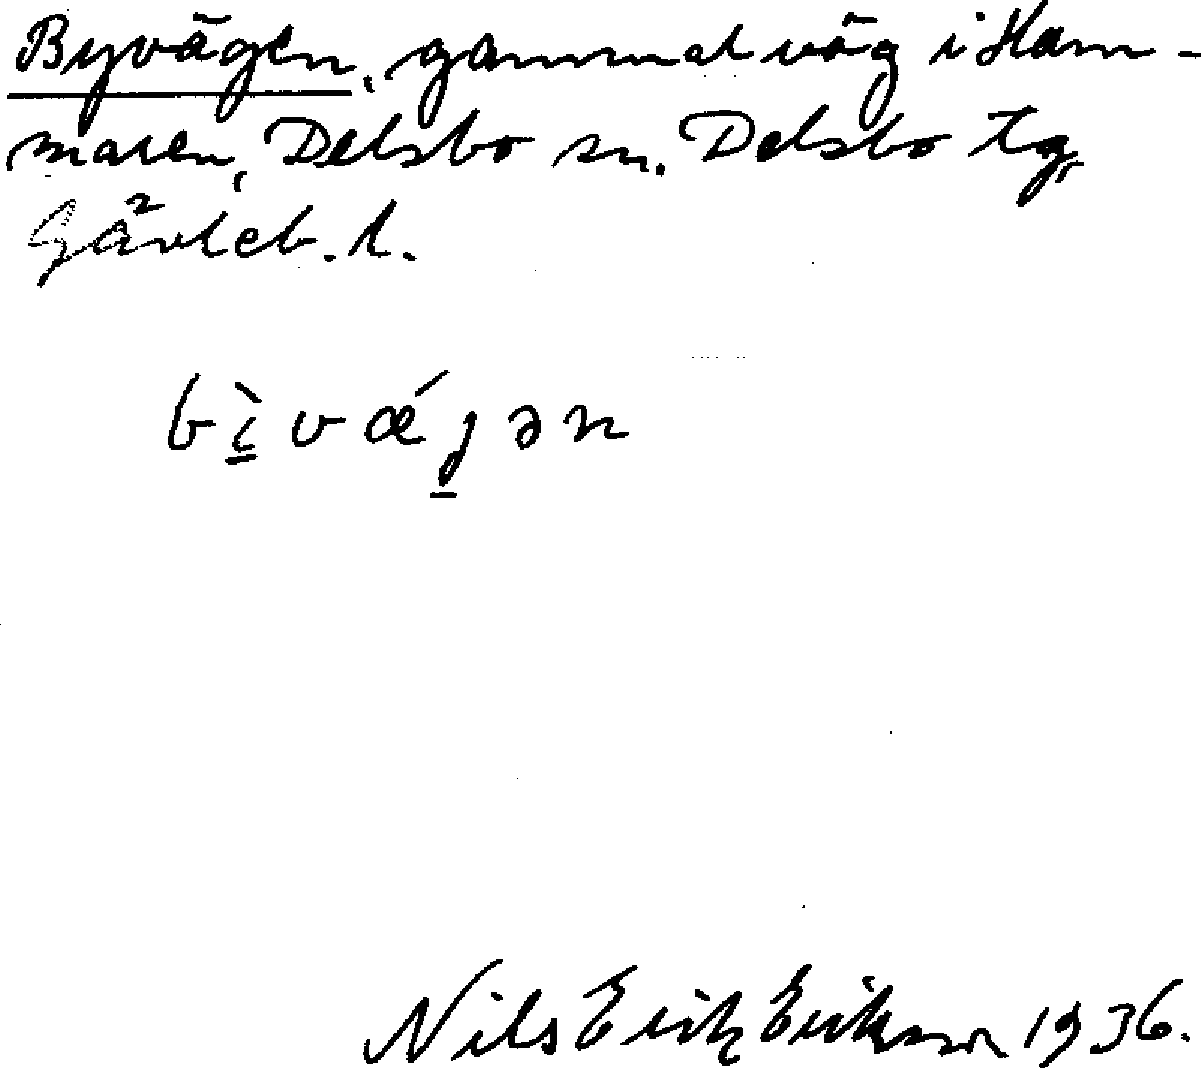 Byvägen, gammal väg i Ham-
maren, Delsbo sn. Delsbo tg,
Gävleb. l.
bìvǽjən
Nils Erik Erikson 1936.